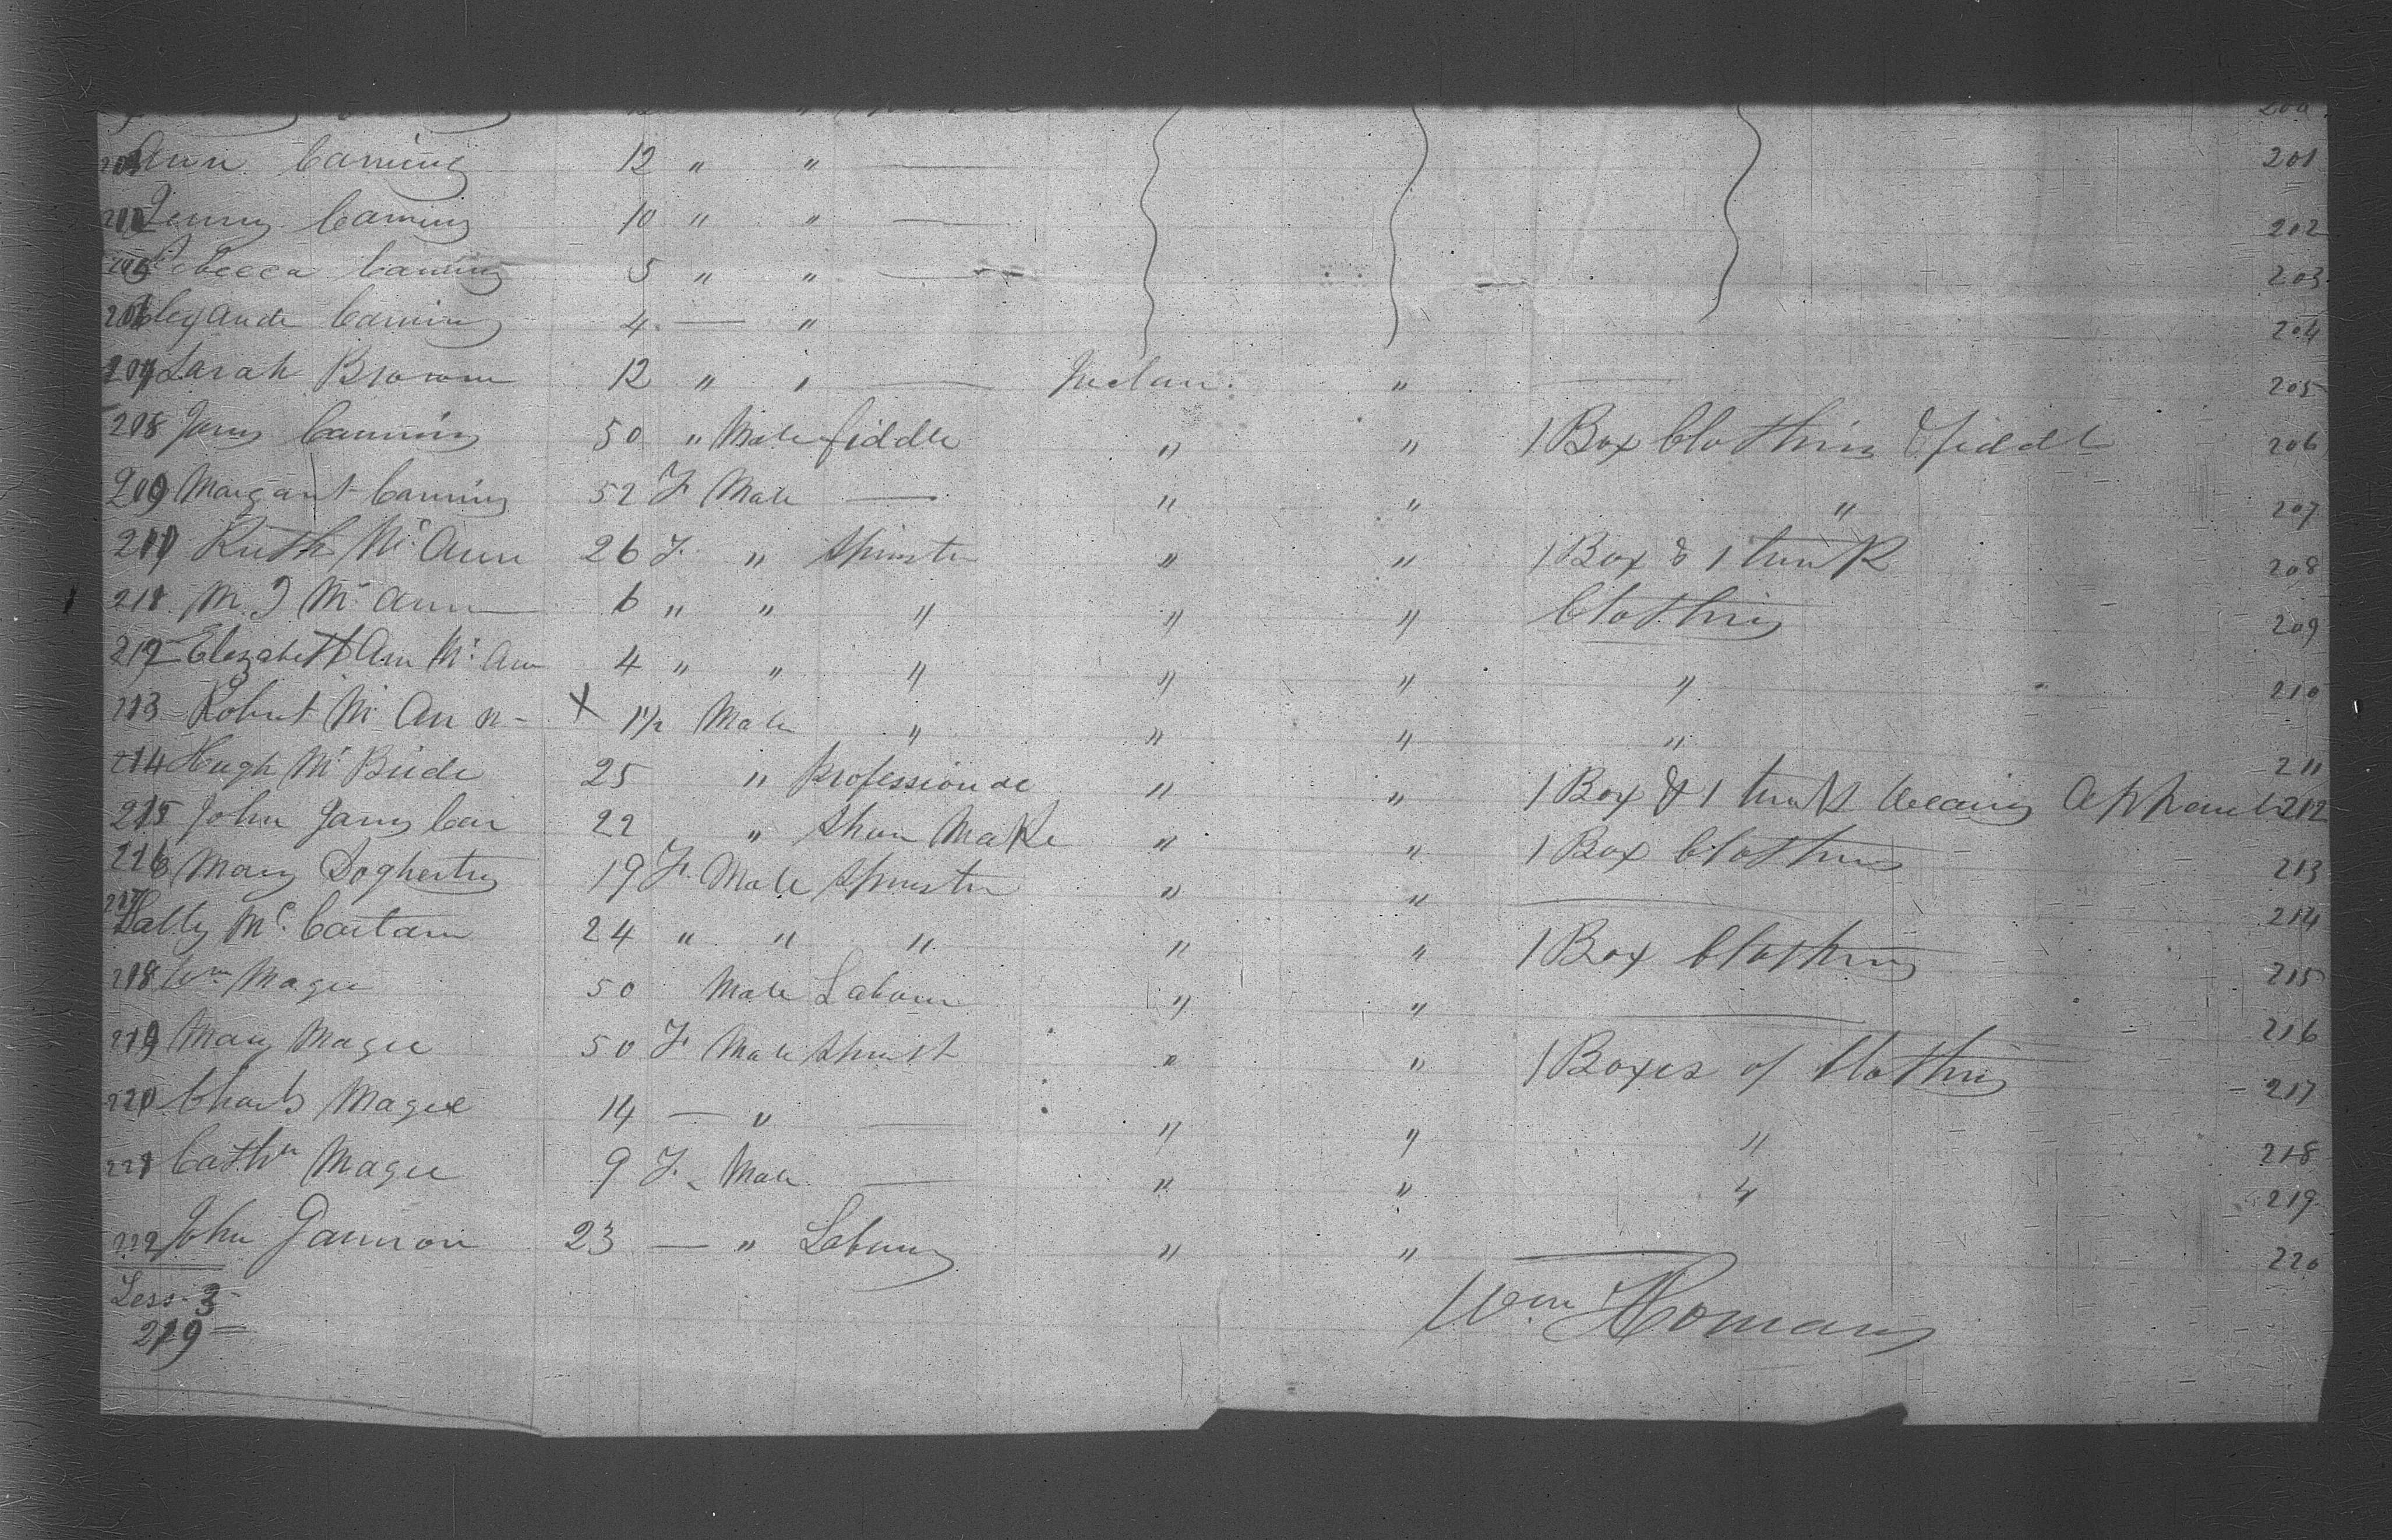 200
Ann Caming 12 " " — 201
Jenny Caming 10 " " — 202
205 Rebecca Caming 5 " " — 203
206 Caming 4 — " 204
207 Sarah Brown 12 " " — " — 205
208 Jams Canning 50 " Male fiddle " " 1 Box Clothing & fiddl 206
209 Margaret Canning 52 F Male — " " " 207
210 Ruth Mc Ann 26 F " Spinster " " 1 Box & 1 trunk 208
211 M J Mc Ann 6 " " " " " Clothing 209
212 Elezabeth Ann Mc Ann 4 " " " " " " 210
213 Robert Mc Ann - X 1½ Male " " " " 211
214 Hugh Mc Bride 25 " Professional " " 1 Box & 1 trunk Wearing 212
215 John Jams Carr 22 " Shoe Make " " 1 Box Clothing 213
216 Mary Dogherty 19 F. Male Spinster " " — 214
217 Sally Mc. Cartann 24 " " " " " 1 Box Clothing 215
218 Wm Magee 50 Male Labour " " — 216
219 Mary Magee 50 F Male Spinst " " 1 Boxes of Clothing 217
220 Charls Magee 14 — " — " " " 218
221 Cathn Magee 9 F. Male — " " " 219
222 John Gannon 23 — " Labourr " " — 220
Less - 3 -
219 —
Wm Homans